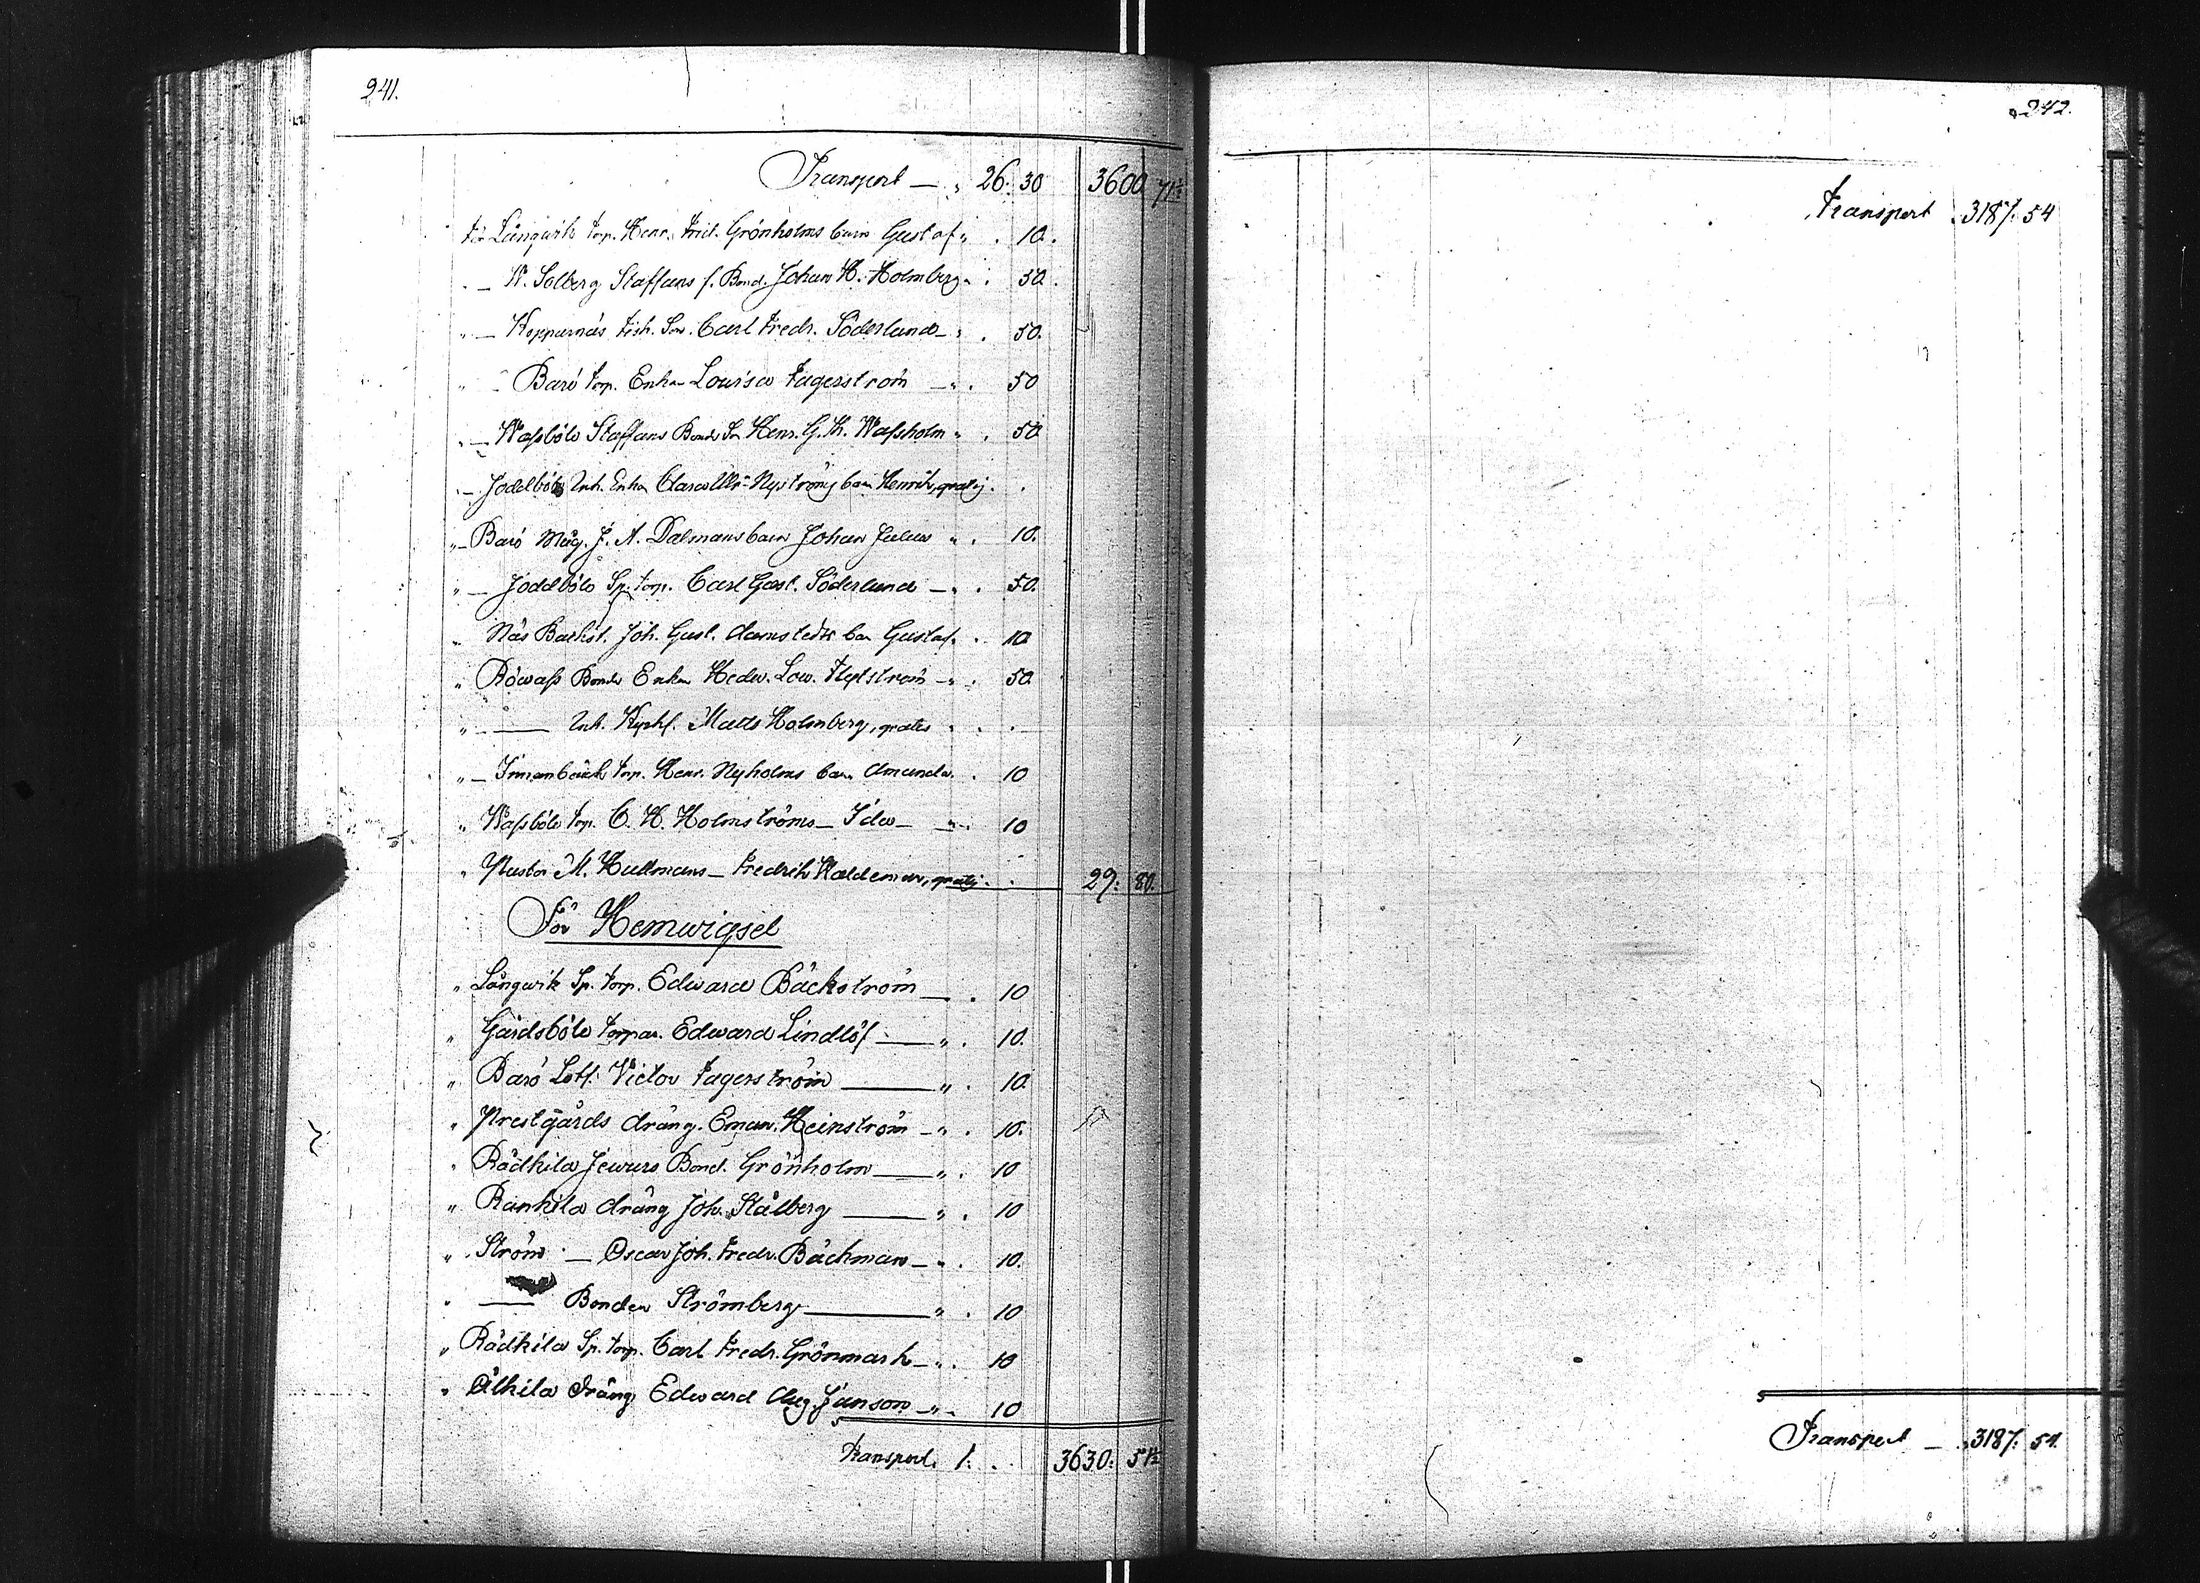 241.
Transport — „ 26: 30 3600 71½
För Långwik torp. Henr. Frid. Grönholms barn Gustaf „ . 10.
„ — W. Solberg Staffans f. Bond. Johan H. Holmberg „ . 50.
„ — Kopparnäs Fish. Son. Carl Fredr. Söderlund — „ . 50.
„ — Barö torp. Enkan Lovisa Fagerström — „ . 50
„ — Wassböle Staffans Bonde Son Henr. G. Wassholm „ . 50
„ — Joddböle Inh. Enkan Clara Ulr. Nyströms barn Henrik, gratis . .
„ — Barö Måg. J. A. Dalmans barn Johan Julius „ . 10.
„ — Joddböle Sp. torp. Carl Gust. Söderlund — „ . 50.
„ Näs Backst. Joh. Gust. barn Gustaf „ . 10
„ Röwass Bonde Enkan Hedv. Lov. Flytström — „ . 50.
„ — Inh. Matts Holmberg, gratis „ . .
„ — Innanbäck torp. Henr. Nyholms barn Amanda . 10
„ Wassböle torp. C. H. Holmströms — Ida — „ . 10
„ Pastor M. Hullmans — Fredrik Waldemar, gratis . . 29: 80.
För Hemwigsel
„ Långwik Sp. torp. Edward Bäckström — . 10
„ Gårdsböle torpar. Edward Lindlöf — „ . 10.
„ Barö Lots. Victor Fagerström — „ . 10.
„ Prestgårds dräng. Eman. Heinström — „ . 10.
„ Rådkila Jewurs Bond. Grönholm — „ . 10
„ Rankila dräng Joh. Stålberg — „ . 10
„ Ström — Oscar Joh. Fredr. Bäckman — „ . 10.
„ — Bonden Strömberg — „ . 10
„ Rådkila Sp. torp. Carl Fredr. Grönmark — „ . 10
„ Älkila dräng Edward Aug. Janson — „ — 10
Transport. 1: . . 3630: 51½
242.
Transport . 3187: 54
Transport — „ 3187: 54.